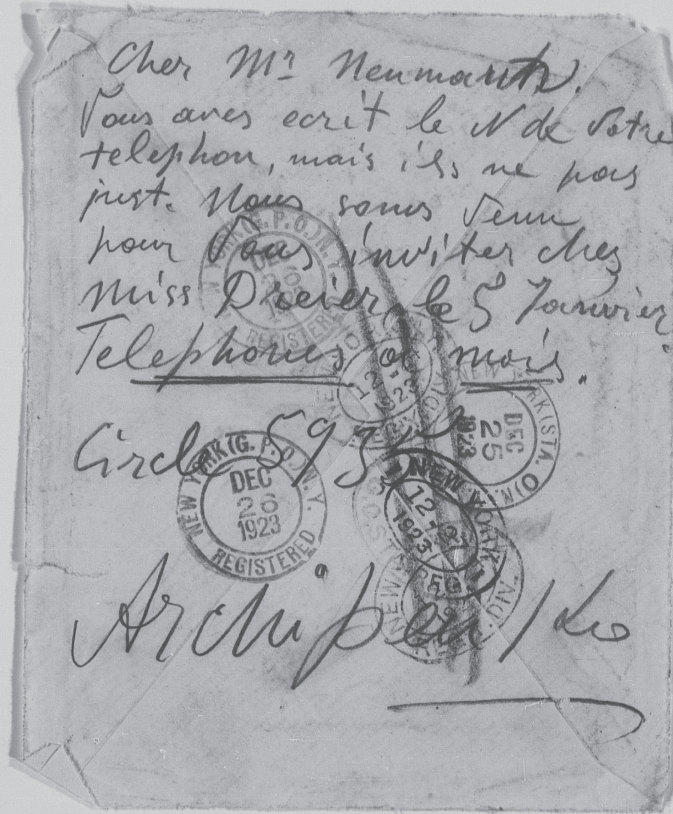 Cher Mr Neumann.
Vous aves ecrit le N de Votre
telephon, mais ils ne pas
just. Nous soms Venu
pour Vous inviter chez
Miss Dreier, le 5 Janvier
Telephones a mois.
Circle 593
Archipenko
NEW YORK (G. P. O.) N. Y.
DEC
REGISTERED
NEW YORK (STA. O) N.
DEC
25
1923
NEW YORK (G. P. O.) N. Y.
DEC
26
1923
REGISTERED
NEW YORK
12-
1923
REG